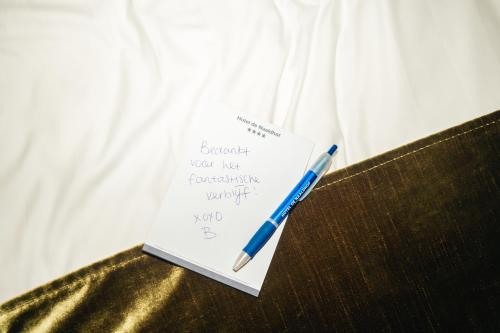 Hotel de Naaldhof
★★★★
Bedankt
voor het
fantastische
verblijf!
xoxo
B